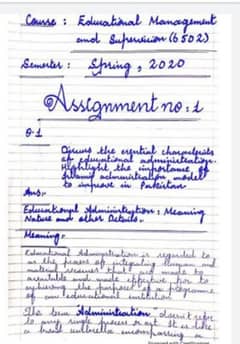 Course : Educational Management
and Supervision (6502)
Semester : Spring, 2020
Assignment no : 1
Q.1
Discuss the essential characteristics
of educational administration.
Highlight the importance of
Islamic administration model
to improve in Pakistan
Ans:-
Educational Administration : Meaning
Nature and other Details:-
Meaning:-
Educational Administration is regarded to
as the process of integrating
material resources that are made to
available and made effective for
achieving the purposes of a programme
of an educational institution.
The term Administration doesn't refer
to any single process or act. It is like
a broad umbrella encompassing a